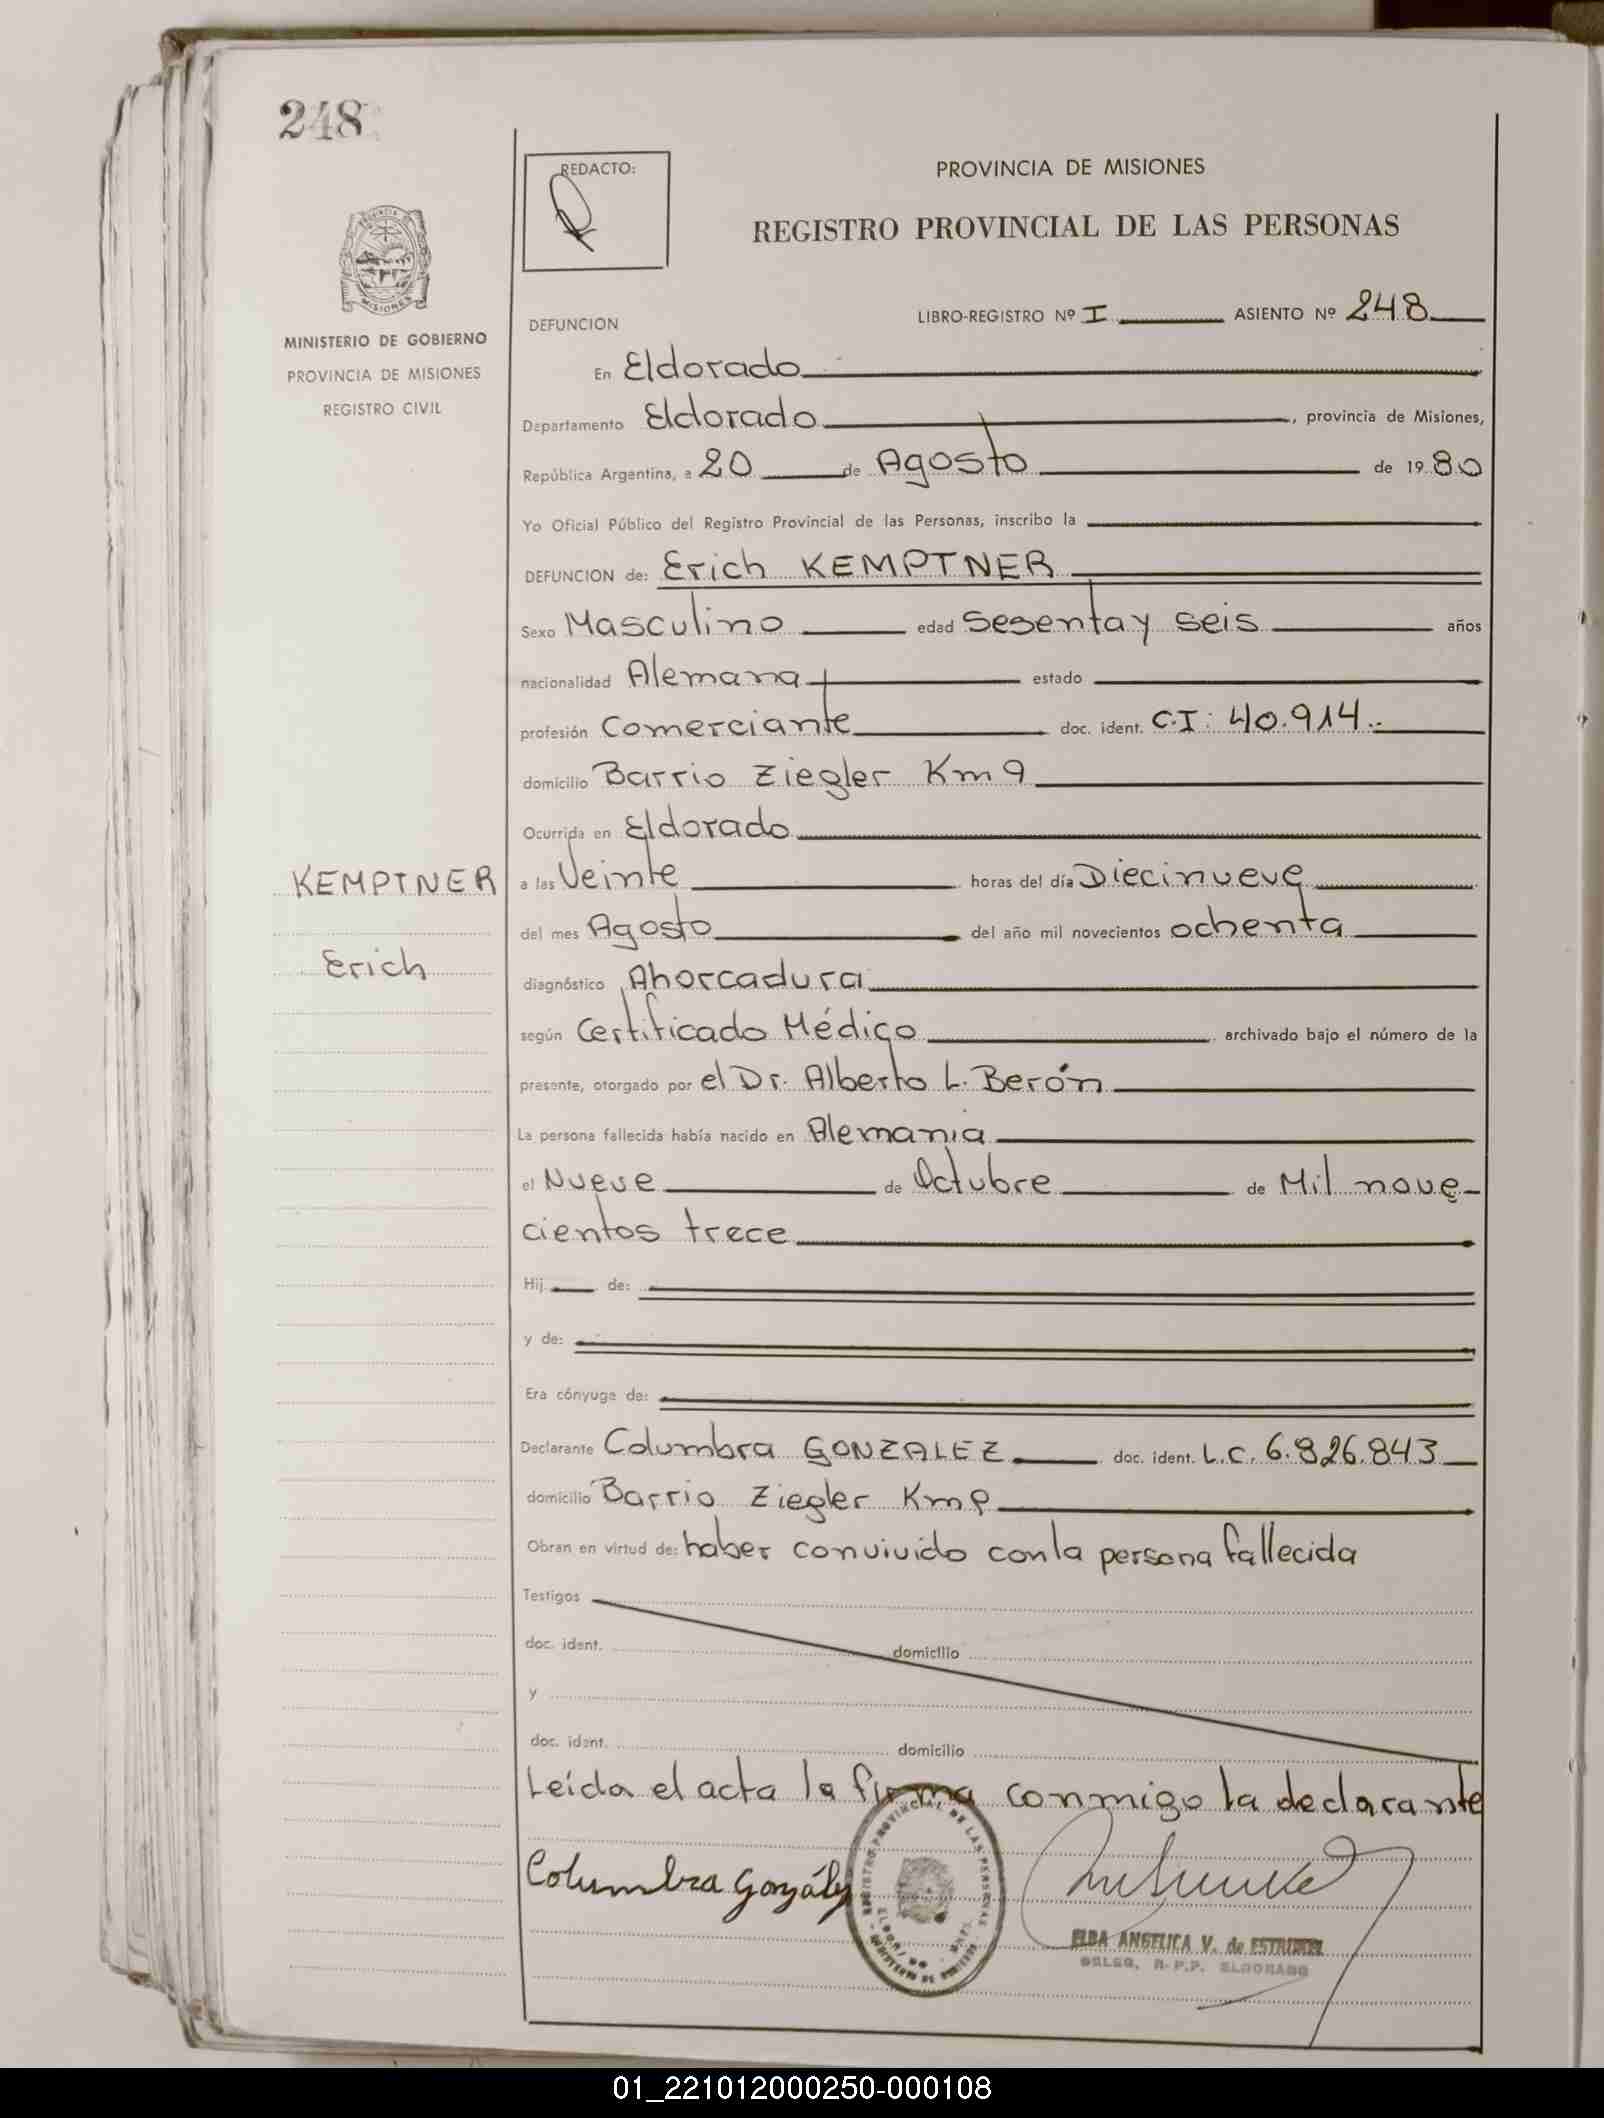 248
REDACTO:
PROVINCIA DE MISIONES
REGISTRO PROVINCIAL DE LAS PERSONAS
MISIONES
MINISTERIO DE GOBIERNO
PROVINCIA DE MISIONES
REGISTRO CIVIL
DEFUNCION
LIBRO-REGISTRO Nº I ASIENTO Nº 248
En Eldorado
Departamento Eldorado, provincia de Misiones,
República Argentina, a 20 de Agosto de 1980
Yo Oficial Público del Registro Provincial de las Personas, inscribo la
DEFUNCION de: Erich KEMPTNER
Sexo Masculino edad Sesenta y seis años
nacionalidad Alemana estado
profesión Comerciante doc. ident. C.I: 40.914.
domicilio Barrio Ziegler Km 9
Ocurrida en Eldorado
KEMPTNER
Erich
a las Veinte horas del día Diecinueve
del mes Agosto del año mil novecientos ochenta
diagnóstico Ahorcadura
según Certificado Médico archivado bajo el número de la
presente, otorgado por el Dr. Alberto L. Berón
La persona fallecida había nacido en Alemania
el Nueve de Octubre de Mil nove-
cientos trece
Hij de:
y de:
Era cónyuge de:
Declarante Columbra GONZALEZ doc. ident. L.C. 6.826.843
domicilio Barrio Ziegler Km 9
Obran en virtud de: haber convivido con la persona fallecida
Testigos
doc. ident. domicilio
y
doc. ident. domicilio
Leída el acta la firma conmigo la declarante
Columbra Gonzály
REGISTRO PROVINCIAL DE LAS PERSONAS
ELBA ANGELICA V. de
DELEG. R.P.P. ELDORADO
01_221012000250-000108